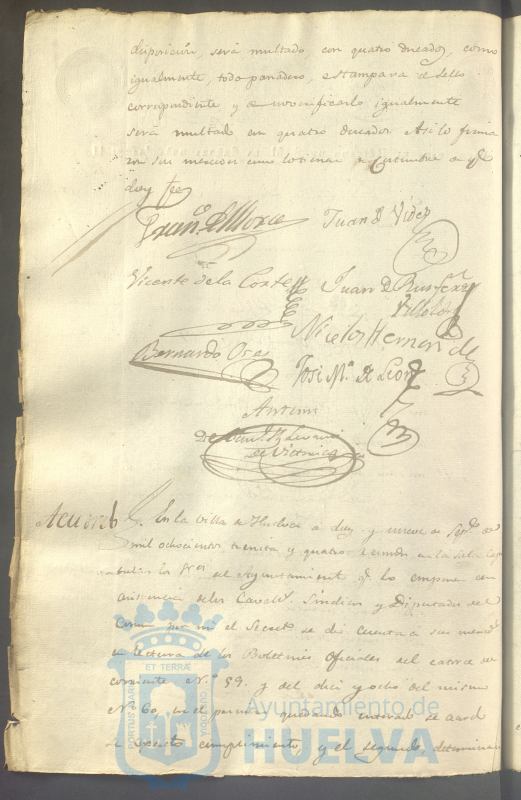 disposicion, será multado con quatro ducados, como
igualmente, todo panadero, estampara el sello
correspondiente y de no verificarlo igualmente
será multado en quatro ducados. Asi lo firma
ron sus mercedes como lo tienen de Costumbre de q.e
doy fee
Fran.co de Mora Juan de Vides
Vicente de la Corte Juan D. Ruis
Nicolas Hernandez
Bernardo
Jose M.a de Leon
Ante mi
Acuerdo En la Villa de Huelva a diez y nueve de Sep.e de
mil ochocientos treinta y quatro reunidos en la Sala Cap
itular los S.res del Ayuntamiento q.e lo componen con
asistencia de los Cavall.s Sindicos y Diputados del
Comun por mi el Secret.o se dio cuenta a sus merc.s
en lectura de los Boletines Oficiales del catorce del
corriente N.o 59. y del diez y ocho del mismo
N.o 60, en el primero quedando enterados se acordó
su exacto cumplimiento, y el segundo, determinan
PORTUS MARIS ET TERRÆ CUSTODIA
Ayuntamiento de
HUELVA